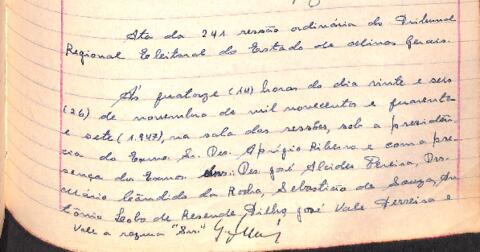 Ata da 241 sessão ordinária do Tribunal
Regional Eleitoral do Estado de Minas Gerais.
Ás quatorze (14) horas do dia vinte e seis
(26) de novembro de mil novecentos e quarenta
e sete (1.947), na sala das sessões, sob a presidên-
cia do Exmo. Sr. Des. Aprígio Ribeiro e com a pre-
sença dos Exmos. Des. José Alcides Pereira, Dos.
Cândido da Rocha, Sebastião de Souza, An-
tônio Lobo de Resende Filho, José Vale Ferreira e
Vale a rasura "Srs."